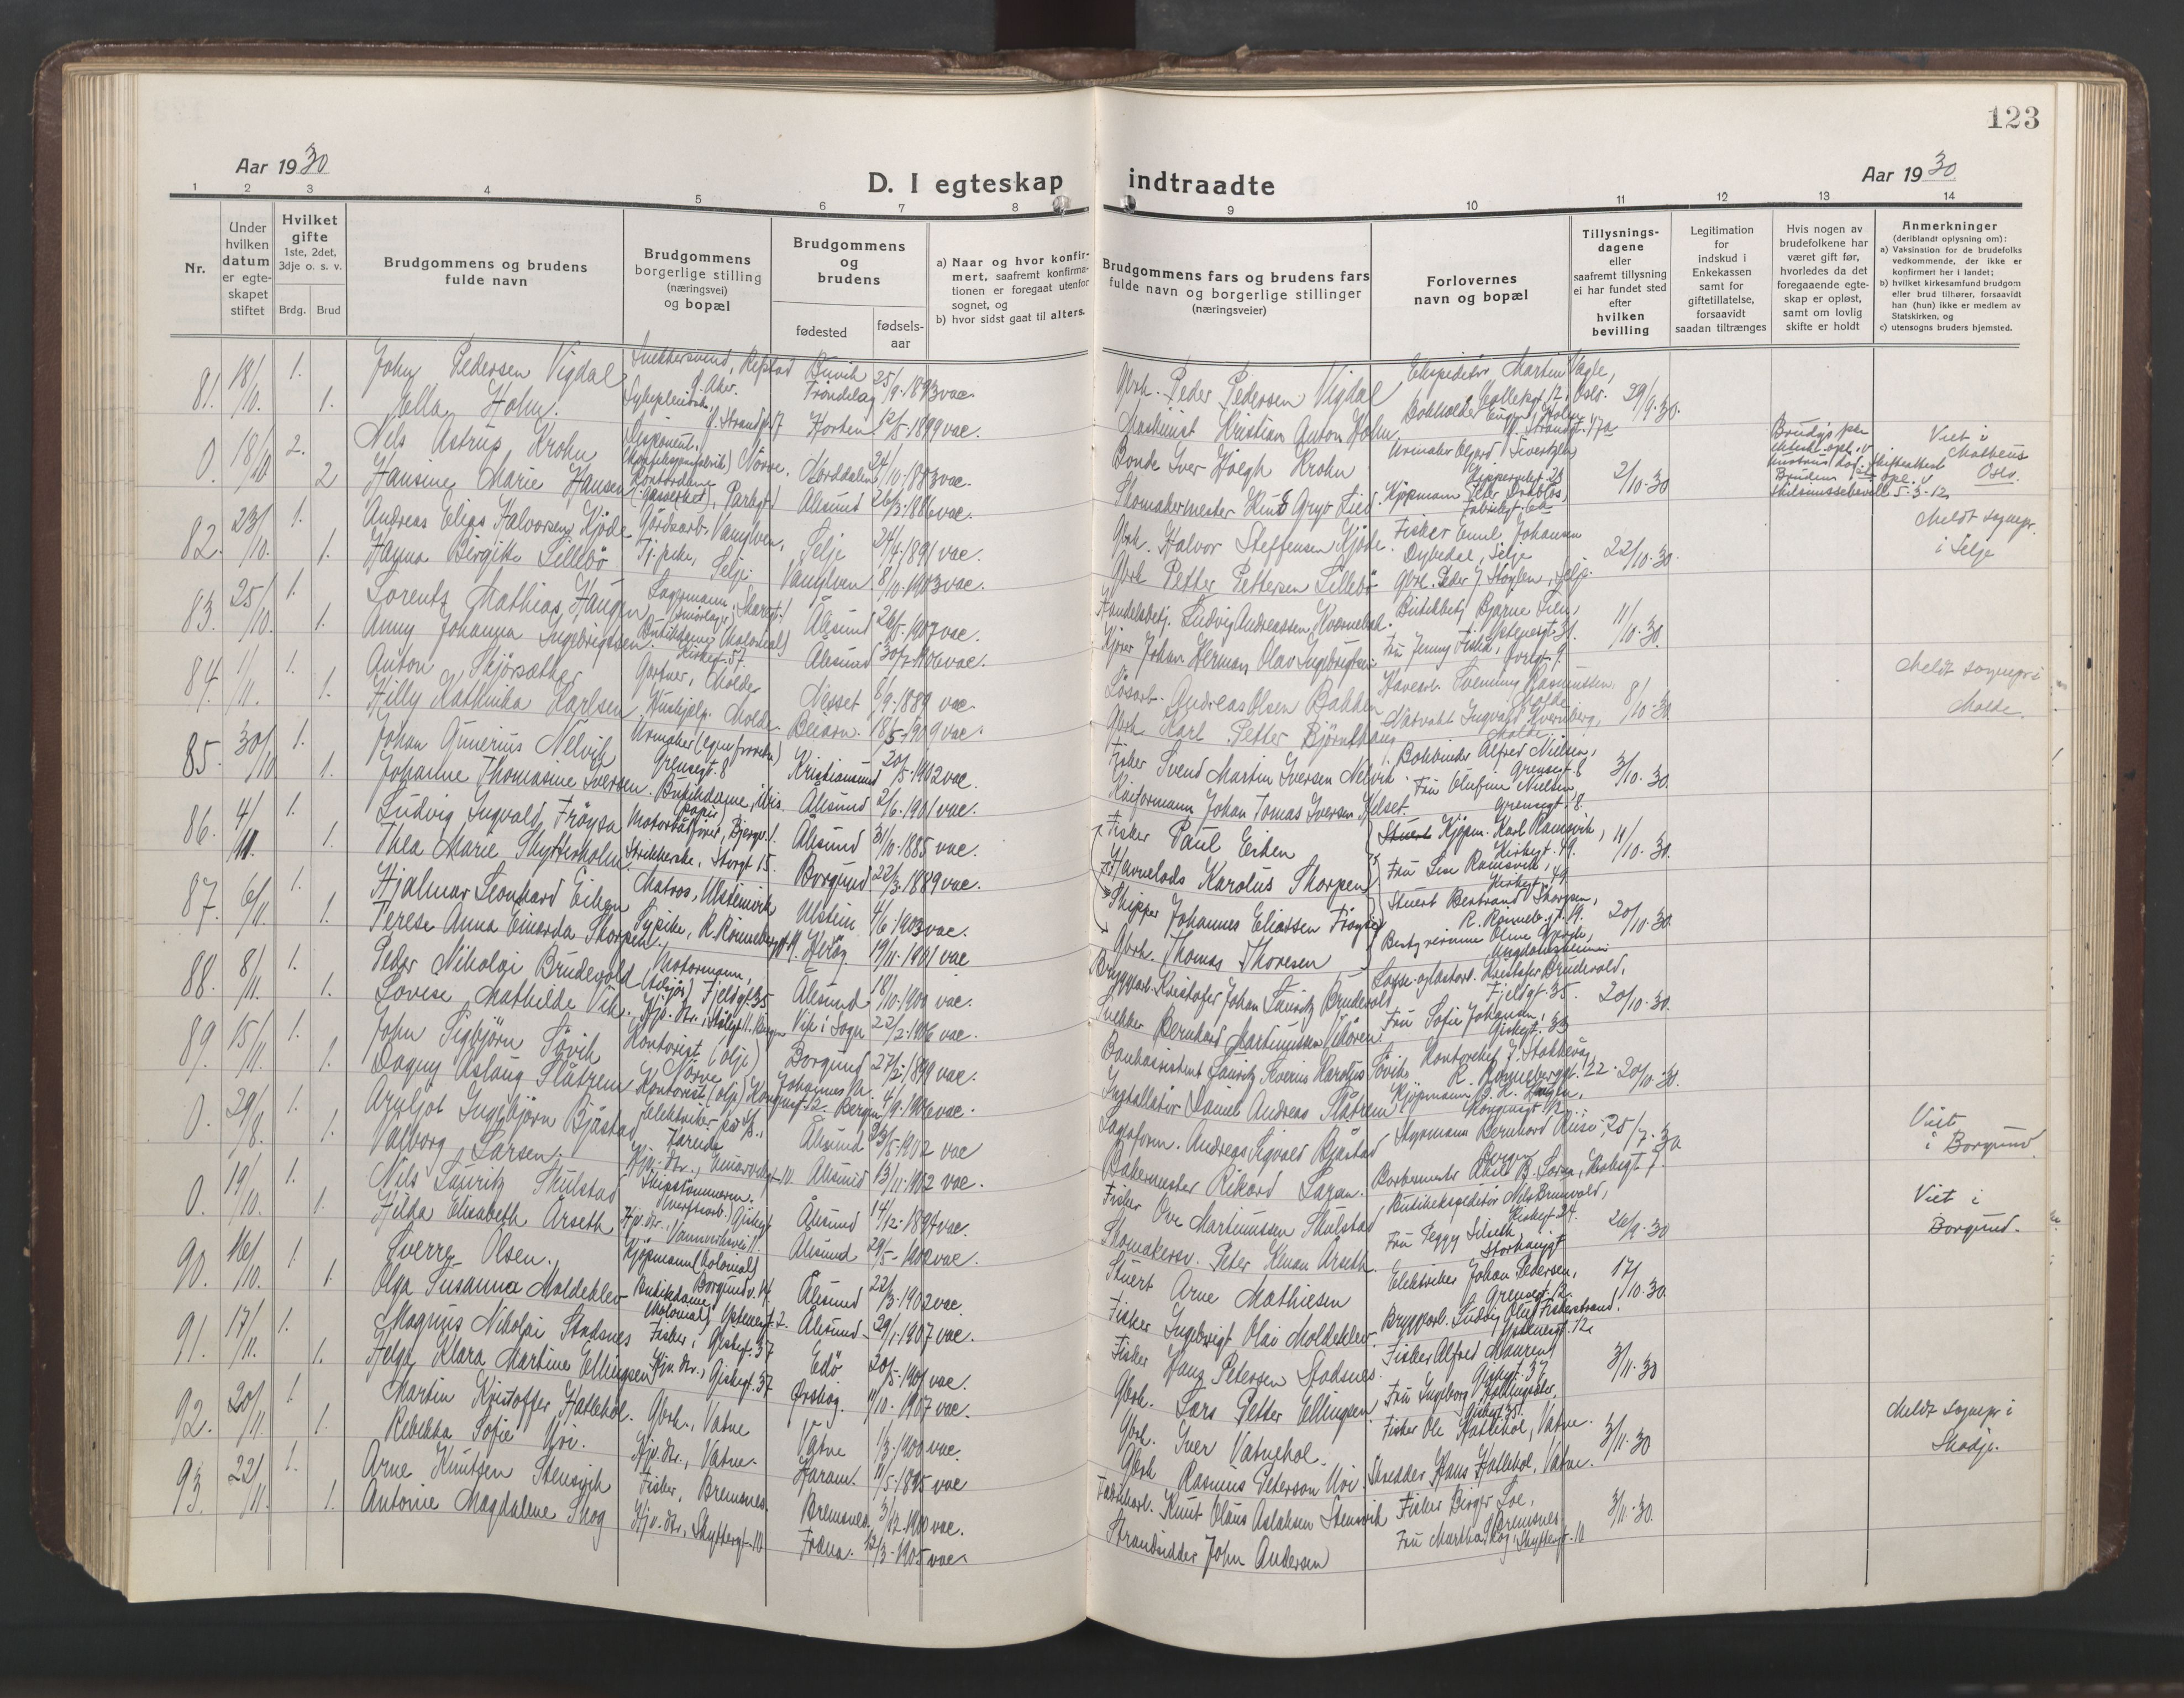 123
Aar 1930
D. I egteskap indtraadte
Aar 1930
1 2 3 4 5 6 7 8 9 10 11 12 13 14
Nr.
Under hvilken datum er egteskapet stiftet
Hvilket gifte 1ste, 2det, 3dje o. s. v.
Brdg. Brud
Brudgommens og brudens fulde navn
Brudgommens borgerlige stilling (næringsvei) og bopæl
Brudgommens og brudens
fødested
fødselsaar
a) Naar og hvor konfirmert, saafremt konfirmationen er foregaat utenfor sognet, og
b) hvor sidst gaat til alters.
Brudgommens fars og brudens fars fulde navn og borgerlige stillinger (næringsveier)
Forlovernes navn og bopæl
Tillysningsdagene eller saafremt tillysning ei har fundet sted efter hvilken bevilling
Legitimation for indskud i Enkekassen samt for giftetillatelse, forsaavidt saadan tiltrænges
Hvis nogen av brudefolkene har været gift før, hvorledes da det foregaaende egteskap er opløst, samt om lovlig skifte er holdt
Anmerkninger (deriblandt oplysning om):
a) Vaksination for de brudefolks vedkommende, der ikke er konfirmert her i landet;
b) hvilket kirkesamfund brudgom eller brud tilhører, forsaavidt han (hun) ikke er medlem av Statskirken, og
c) utensogns bruders hjemsted.
81. 18/10. 1. John Pedersen Vigdal Buvik 25/9-1893 vac. Gbrk. Peder Pedersen Vigdal Ekspeditør Martin Vagle, 29/9-30.
1. Ella Holm. Horten 12/5-1899 vac. Maskinist Kristian Anton Holm
0. 18/10 2. Nils Astrup Krohn Disponent, Norddalen 24/10-1883 vac. Bonde Iver Höegh Krohn 2/10-30 Viet i Matheus Oslo.
2 Hansine Marie Hansen Ålesund 26/3-1886 vac. Skomakermester Knut Gryt Lied. Kjøpmann Peter Drabløs,
82. 23/10. 1. Andreas Elias Halvorsen Kjøde Gårdsarb. Vanylven, Selje 24/4-1891 vac. Gbrk. Halvor Steffensen Kjøde. Fisker Emil Johansen Dybedal, Selje 22/10-30. Meldt sognepr. i Selje
1. Hagna Birgitte Lillebø Tj. pike, Selje Vanylven 8/10-1903 vac. Gbrk Petter Pettersen Lillebø Gbrk. Peder J Støylen, Selje.
83. 25/10. 1. Lorentz Mathias Haugen Ålesund 26/5-1907 vac. Ludvig Andreassen Kvernebak. Butikkbetj. Bjarne Lien, 11/10-30.
1. Anny Johanna Ingebrigtsen. Kirkegt. 57. Ålesund 30/7-1906 vac. Kjører Johan Herman Olav Ingebrigtsen Fru Jenny Fiskå, Torvgt. 9.
84. 1/11. 1. Anton Skjørsæther Gartner, Molde Nesset 6/9-1889 vac. Løsarb. Andreas Olsen Bakken Havearb. Svenning Rasmussen, Molde 8/10-30 Meldt sognepr i Molde.
1. Hilly Kathinka Karlsen Hushjelp. Molde Beiarn. 18/5-1909 vac. Gbrk Karl Petter Bjørnthaug Natvakt Ingvald Kvernberg, Molde
85. 30/10 1. Johan Gunerius Nelvik Urmaker (egen forretn) Grensegt. 8 Kristiansund 20/5-1902 vac. Fisker Svend Martin Iversen Nelvik. Bokbinder Alfred Nielsen, Grensegt. 8 3/10-30.
1. Johanne Thomasine Iversen. Butikdame, Ålesund 2/6-1901 vac. Johan Tomas Iversen Helset. Fru Olufine Nielsen Grensegt. 8.
86. 4/11. 1. Ludvig Ingvald Frøysa Motorbåtfører, Ålesund 31/10-1885 vac. Fisker Paul Eiken Kjøpm. Karl Ramsvik, Kirkegt. 49. 11/10-30.
1. Thea Marie Skytterholm. Strikkerske, Storgt 15. Borgund 22/3-1889 vac. Havnelods Karolus Skorpen Fru Lise Ramsvik, Kirkegt. 49
87. 6/11. 1. Hjalmar Leonhard Eiken Matros, Ulsteinvik Ulstein 4/6-1903 vac. Skipper Johannes Eliassen Frøysa Stuert Bertrand Skorpen, R. Rønneb. gt. 19. 20/10-30
1. Terese Anna Einarda Skorpen. Sypike, R. Rønnebergsgt 19. Herøy. 19/11-1901 vac Gbrk. Thomas Thoresen
88. 8/11. 1. Peder Nikolai Brudevold Motormann, Fjeldgt. 35 Ålesund 18/10-1900 vac. Bryggearb. Kristofer Johan Lauritz Brudevold Kristofer Brudevold, Fjeldgt. 35. 20/10-30.
1. Lovise Mathilde Vik. Vik i Sogn 22/2-1906 vac. Snekker Bernhard Martinussen Fru Sofie Johansen, Giskegt. 33
89. 15/11. 1. John Sigbjørn Søvik Kontorist (olje) Nørve Borgund 27/12-1899 vac. Bankassistent Lauritz Severin Karolus Søvik Kontorchef J. Stokkevåg, R. Rønnebergsgt. 22. 20/10-30.
1. Dagny Aslaug Slåtrem Kontorist (olje) Kongensgt. 12. Bergen 4/9-1906 vac. Installatør Daniel Andreas Slåtrem Kjøpmann
0. 29/8. 1. Arnljot Ingebjørn Bjåstad Ålesund 23/5-1902 vac Lagsform. Andreas Sigvald Bjåstad Styrmann Bernhard Riise, 25/7-30. Viet i Borgund.
1. Valborg Larsen. Ålesund 13/11-1902 vac. Bakermester Rikard Larsen.
0. 19/10. 1. Nils Lauritz Skulstad Skipstømmerm. Ålesund 14/12-1897 vac. Fisker Ove Martinussen Skulstad Butikekspeditør Nils Brunvold, Kirkegt 24. 26/9-30 Viet i Borgund.
1. Hilda Elisabeth Årseth Hjv. dtr., Ålesund 29/5-1900 vac. Skomakersv. Peter Knem Årseth Fru Peggy Schieth Storhaugt
90. 16/10. 1. Sverre Olsen. Kjøpmann (kolonial) Borgundv. 14 Ålesund 22/3-1902 vac. Stuert Arne Mathiesen Elektriker Johan Pedersen, Grensegt. 12. 17/10-30
1. Olga Susanna Moldeklev Butikdame (kolonial) Ålesund 29/1-1907 vac. Fisker Ingebrigt Olai Moldeklev Bryggearb. Ludvig Oluf Fiskerstrand,
91. 17/11. 1. Magnus Nikolai Stadsnes Fisker, Giskegt. 37 Edø 20/5-1901 vac. Fisker Hans Petersen Stadsnes. Fisker Alfred Mauren Giskegt. 37 3/11-30
1. Helga Klara Martine Ellingsen Hjv. dtr., Giskegt. 37 Ørskog. 11/10-1907 vac. Gbrk. Lars Petter Ellingsen Fru Ingeborg
92. 20/11. 1. Martin Kristoffer Hatlehol. Gbrk., Vatne Vatne 1/3-1900 vac. Gbrk. Iver Vatnehol. Fisker Ole Hatlehol, Vatne. 3/11-30 Meldt sognepr i Skodje.
1. Rebekka Sofie Uri. Hjv. dtr., Vatne. Haram. 11/5-1895 vac Gbrk Rasmus Peterson Uri. Skredder Hans Hatlehol, Vatne.
93. 22/11. 1. Arne Knutsen Stensvik Fisker, Bremsnes. Bremsnes. 3/12-1900 vac. Fabrikarb. Knut Olaus Aslaksen Stensvik Fisker Birger Loe, Bremsnes 3/11-30.
1. Antonie Magdalene Skog Hjv. dtr., Skyttergt. 10 Fræna. 12/3-1905 vac. Strandsidder John Andersen Fru Martha Skog, Skyttergt. 10